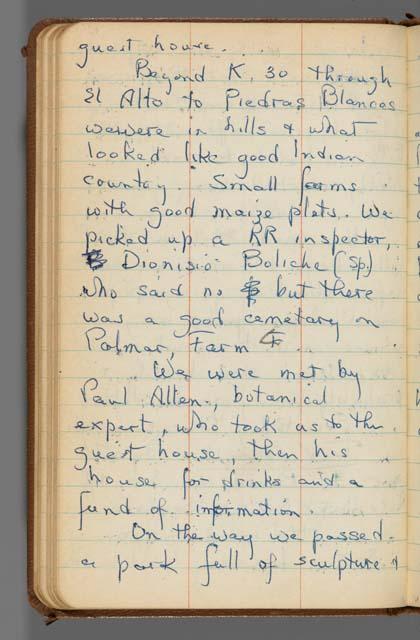 guest house. . .
Beyond K. 30 through
El Alto to Piedras Blancas
wewere in hills & what
looked like good Indian
country. Small farms
with good maize plots. We
picked up a RR inspector,
Dionisio Boliche (sp)
who said no but there
was a good cemetary on
Palmar, Farm 4.
We were met by
Paul Allen, botanical
expert, who took us to the
guest house, then his
house for drinks and a
fund of information.
On the way we passed
a park full of sculpture &